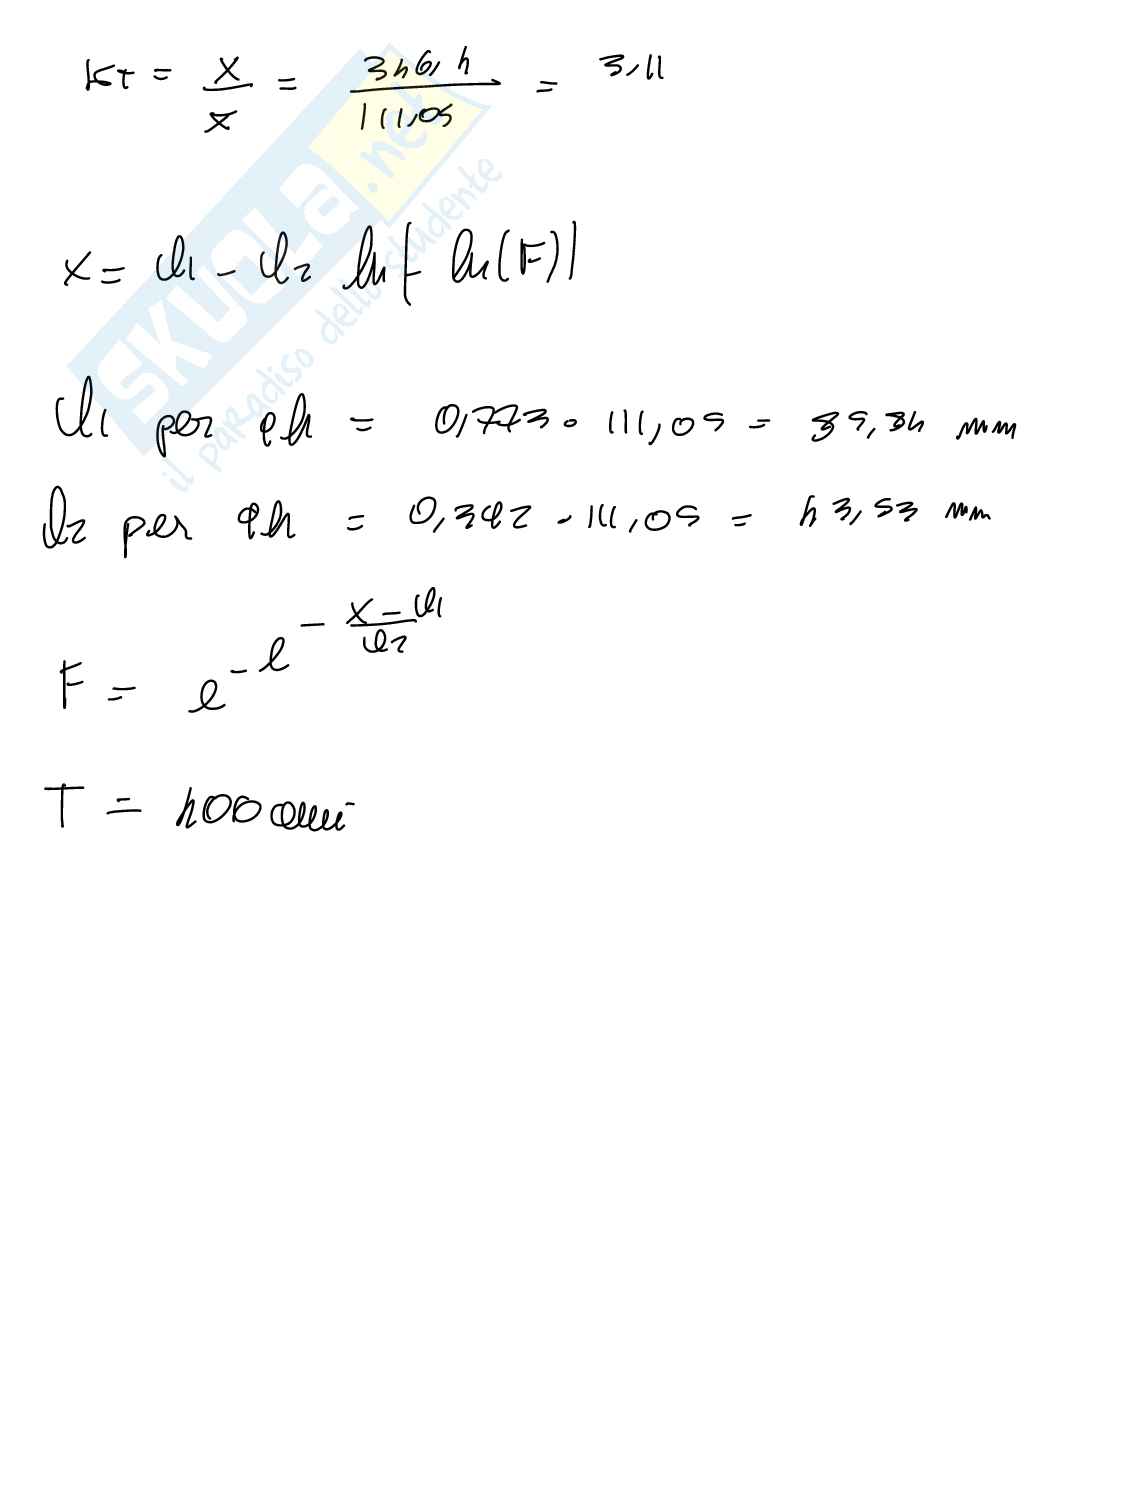 KT = x / x̄ = 346,4 / 111,05 = 3,11
x = θ1 - θ2 ln[- ln(F)]
θ1 per 24h = 0,773 · 111,05 = 85,84 mm
θ2 per 24h = 0,392 · 111,05 = 43,53 mm
F = e^-e^-(x-θ1)/θ2
T = 400 anni
SKUOLA.net
il paradiso dello studente